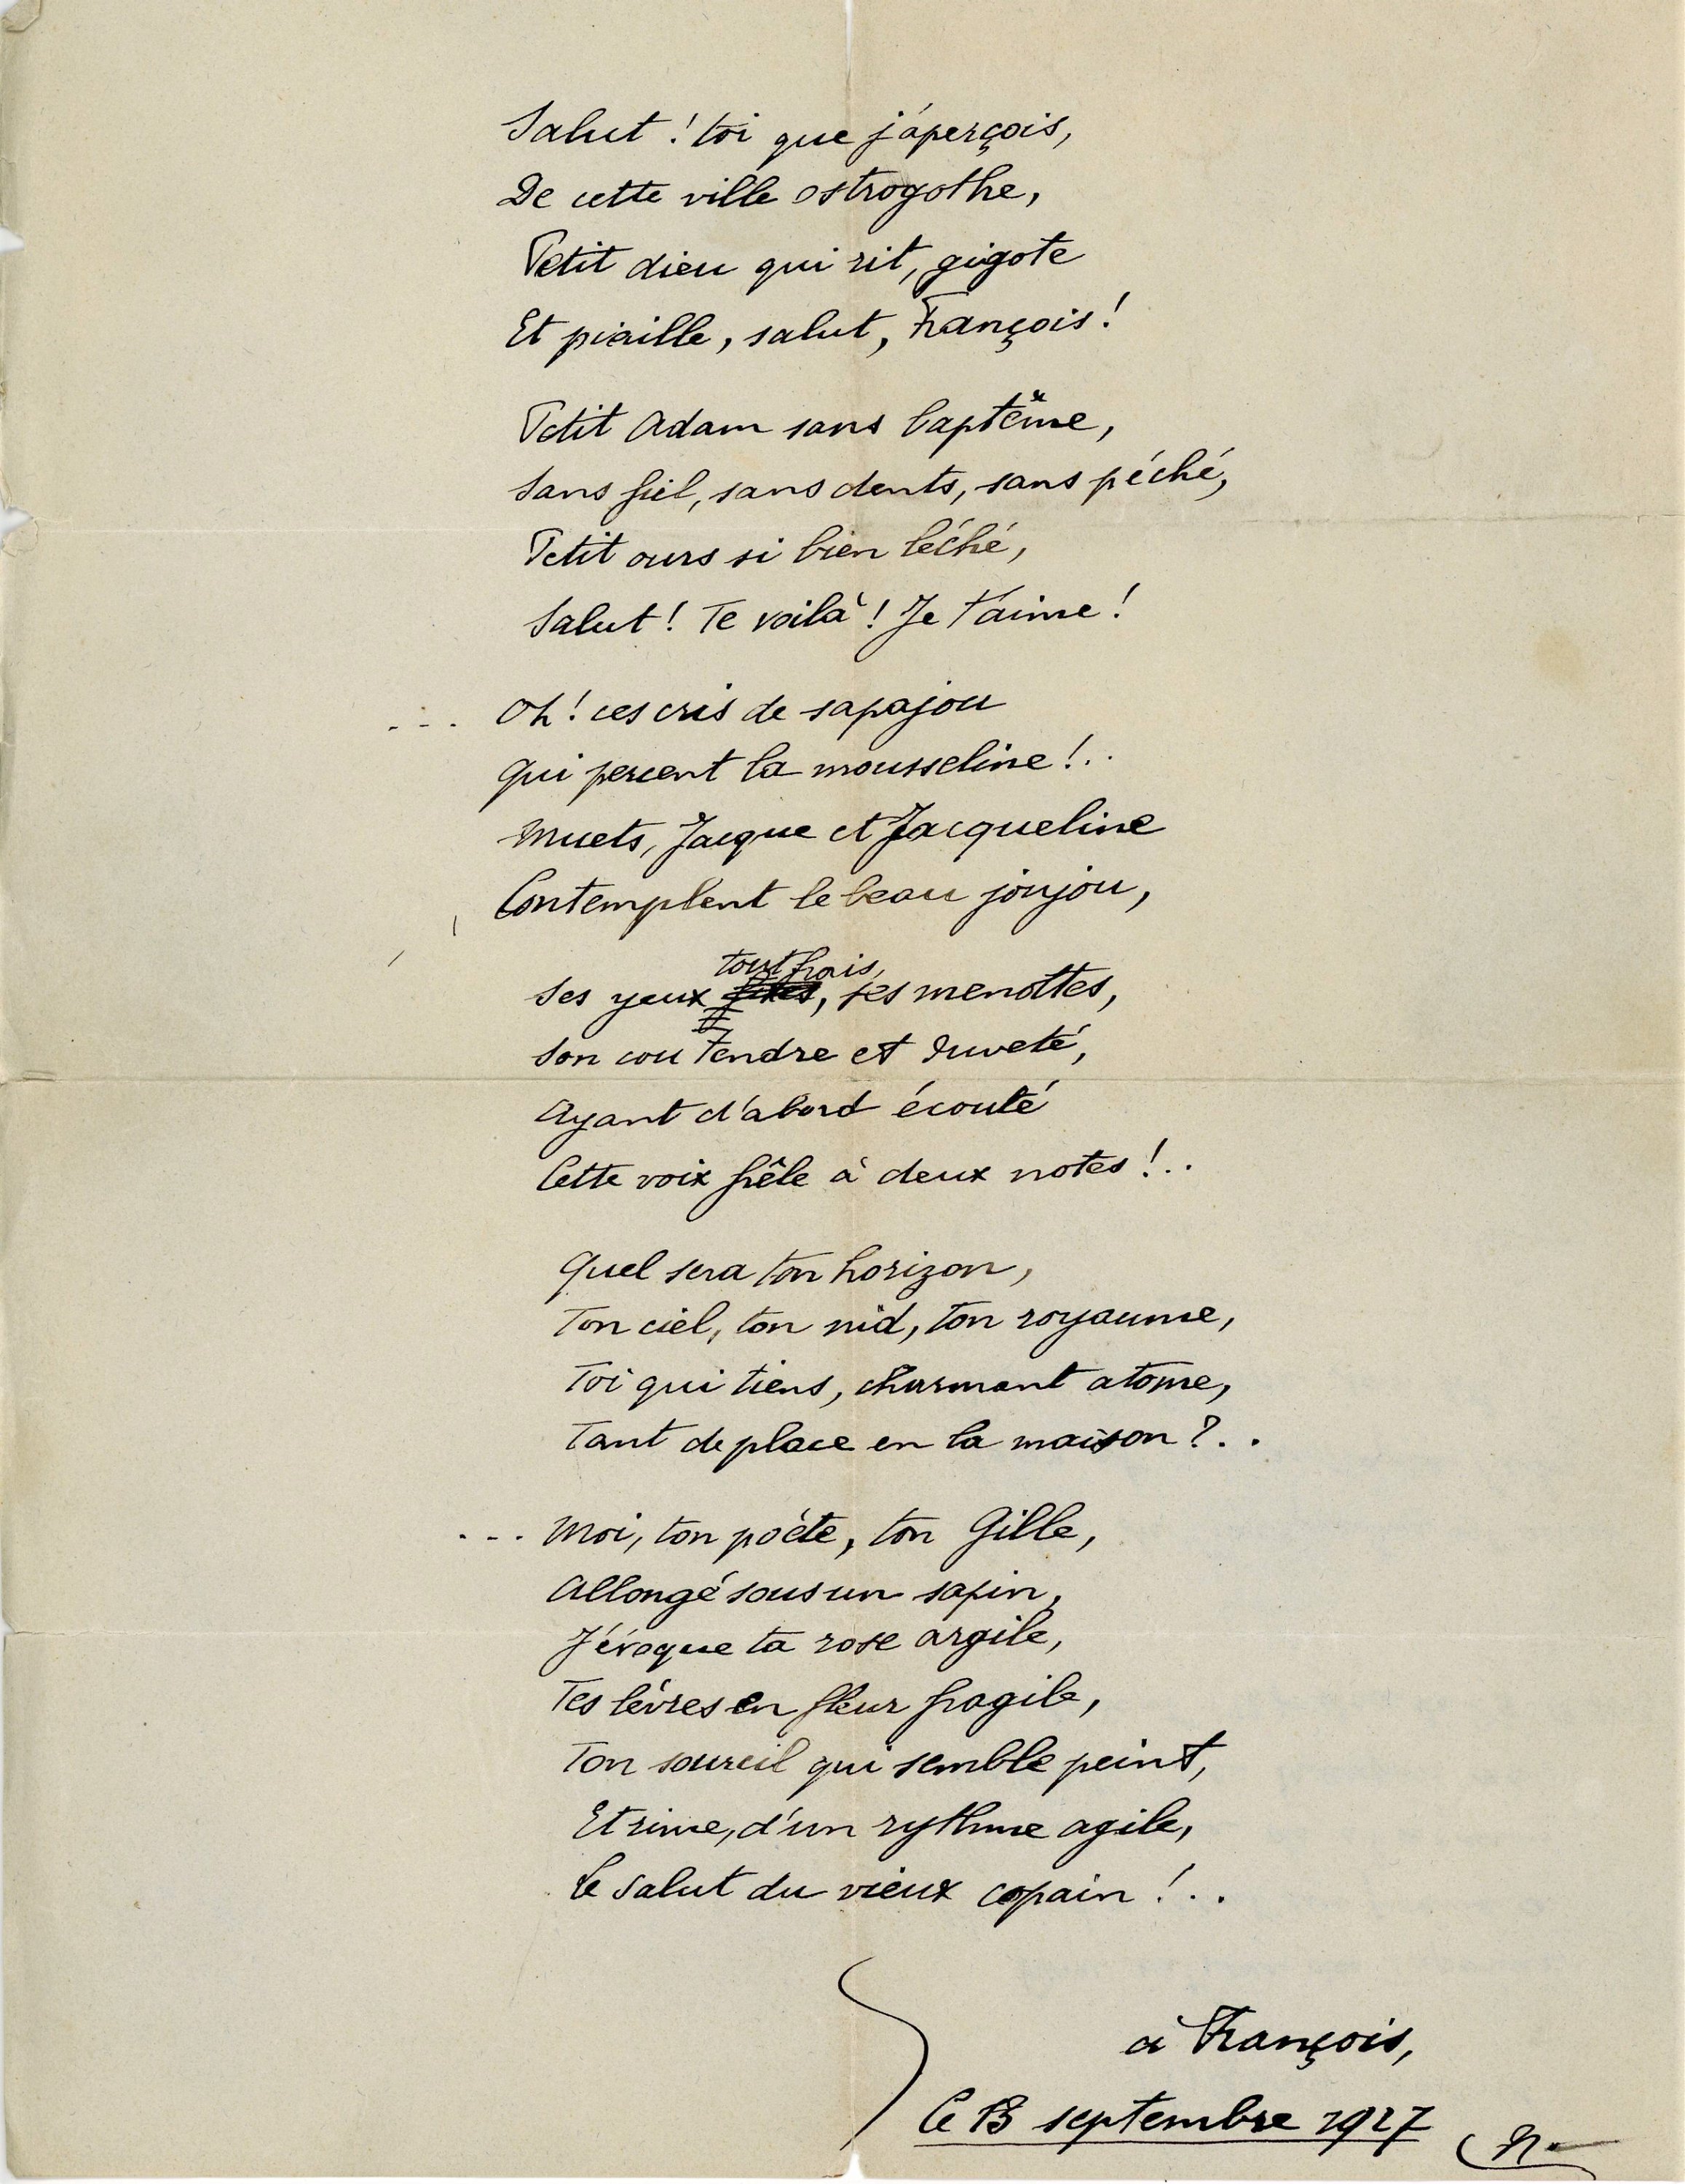 Salut ! toi que j'aperçois,
De cette ville ostrogothe,
Petit dieu qui rit, gigote
Et piaille, salut, François !
Petit Adam sans baptême,
Sans fiel, sans dents, sans péché,
Petit ours si bien léché,
Salut ! Te voilà ! Je t'aime !
... Oh ! ces cris de sapajou
Qui percent la mousseline !..
Muets, Jacque et Jacqueline
Contemplent le beau joujou,
tout frais,
Ses yeux fixes, ses menottes,
Son cou tendre et duveté,
Ayant d'abord écouté
Cette voix frêle à deux notes !..
Quel sera ton horizon,
Ton ciel, ton nid, ton royaume,
Toi qui tiens, charmant atome,
Tant de place en la maison ?..
... Moi, ton poète, ton Gille,
Allongé sous un sapin,
J'évoque ta rose argile,
Tes lèvres en fleur fragile,
Ton sourcil qui semble peint,
Et rime, d'un rythme agile,
Le salut du vieux copain !..
à François,
Ce 13 septembre 1927